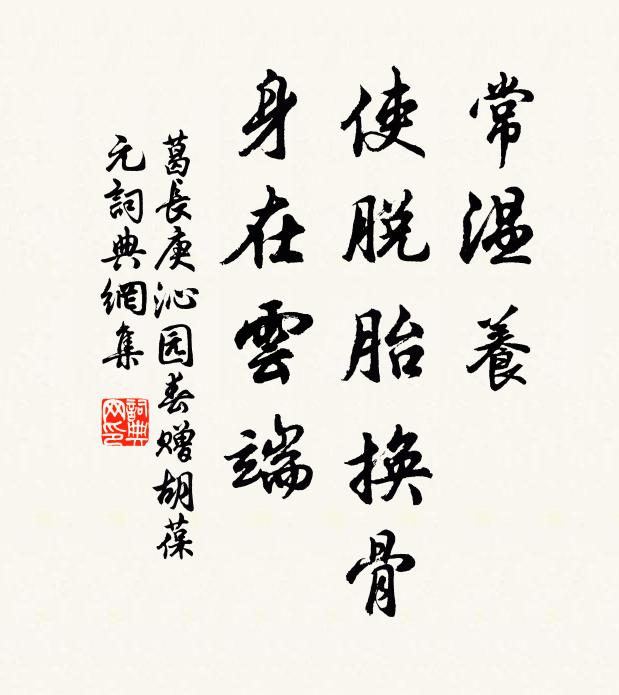 常温養
使脱胎換骨
身在雲端
葛長庚沁园春赠胡葆
元詞典網集
詞典網印